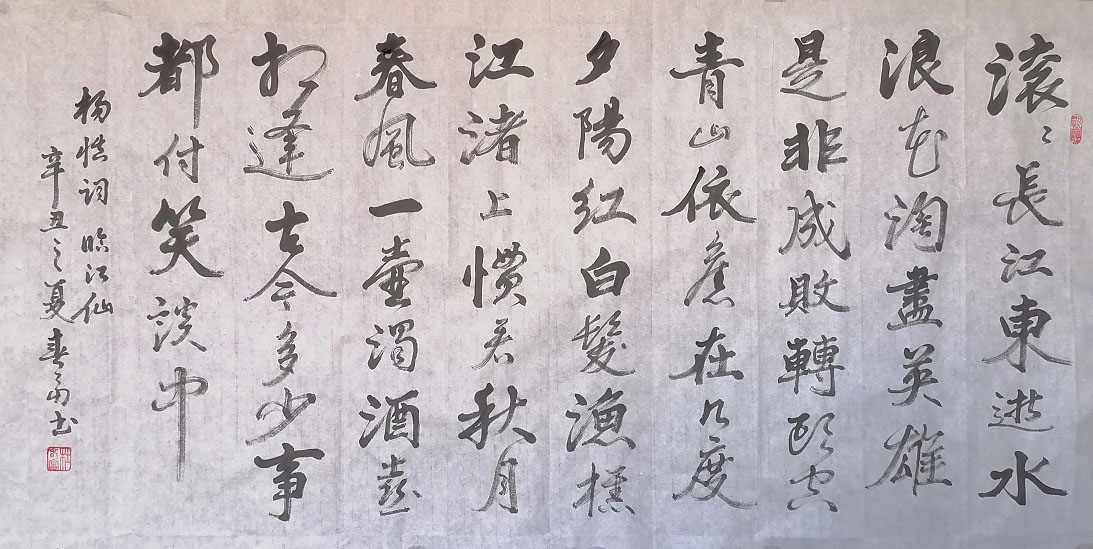 滚〻長江東逝水
浪花淘盡英雄
是非成敗轉頭空
青山依舊在几度
夕陽紅白髮漁樵
江渚上慣看秋月
春風一壺濁酒喜
相逢古今多少事
都付笑談中
杨慎词臨江仙
辛丑之夏春书